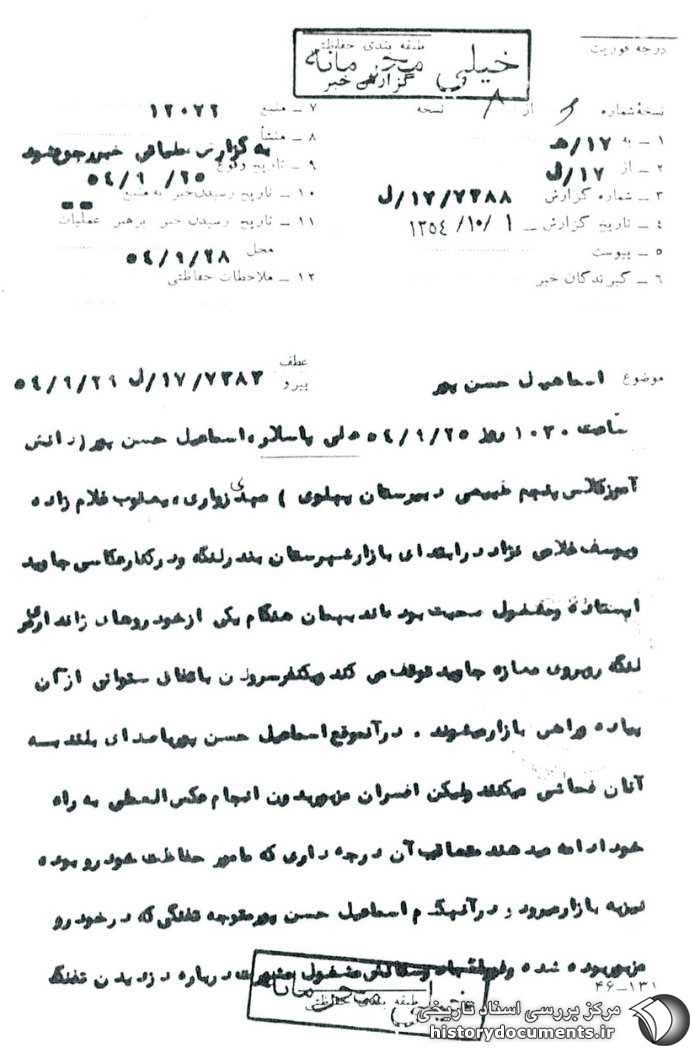 درجه فوریت
طبقه بندی حفاظتی
خیلی محرمانه
گزارش خبر
نسخهٔ شماره از ۸ نسخه
۱ ـ به ۱۷/ﻫ
۲ ـ از ۱۷/ل
۳ ـ شماره گزارش ۱۷/۷۳۸۸/ل
۴ ـ تاریخ گزارش ـ ۱۳۵۴/۱۰/۱
۵ ـ پیوست
۶ ـ گیرندگان خبر
۷ ـ منبع ۱۲۰۷۲
۸ ـ منشأ
به گزارش خبر رجوع شود
۹ ـ تاریخ وقوع ۵۴/۹/۲۵
۱۰ ـ تاریخ رسیدن خبر به منبع
۱۱ ـ تاریخ رسیدن خبر برهبر عملیات
محل ۵۴/۹/۲۸
۱۲ ـ ملاحظات حفاظتی
موضوع اسماعیل حسن پور
عطف
پیرو ۱۷/۷۳۸۳/ل ۵۴/۹/۲۹
ساعت ۱۰۳۰ روز ۵۴/۹/۲۵ علی پاسلار، اسماعیل حسن پور (دانش
آموز کلاس پنجم طبیعی دبیرستان پهلوی) مهدی زواری، یعقوب غلام زاده
ویوسف غلامی نژاد در ابتدای بازار شهرستان بندرلنگه و در کنار عکاسی جاوید
ایستاده و مشغول صحبت بوده‌اند بهمان هنگام یکی از خودروهای ژاندارمری
لنگه روبروی مغازه جاوید توقف می کند ویکنفر سروان باتفاق ستوانی از آن
پیاده وراهی بازار میشوند . در آنموقع اسماعیل حسن پور با صدای بلند به
آنان فحاشی میکند ولیکن افسران مزبور بدون انجام عکس العملی به راه
خود ادامه میدهند متعاقب آن درجه داری که مامور حفاظت خودرو بوده
نیز به بازار میرود و در آنهنگام اسماعیل حسن پور متوجه تفنگی که در خودرو
مزبور بوده شده و مشغول مشورت درباره دزدیدن تفنگ
۴۶-۱۳۱
طبقه بندی حفاظتی
خیلی محرمانه
مرکز بررسی اسناد تاریخی
historydocuments.ir